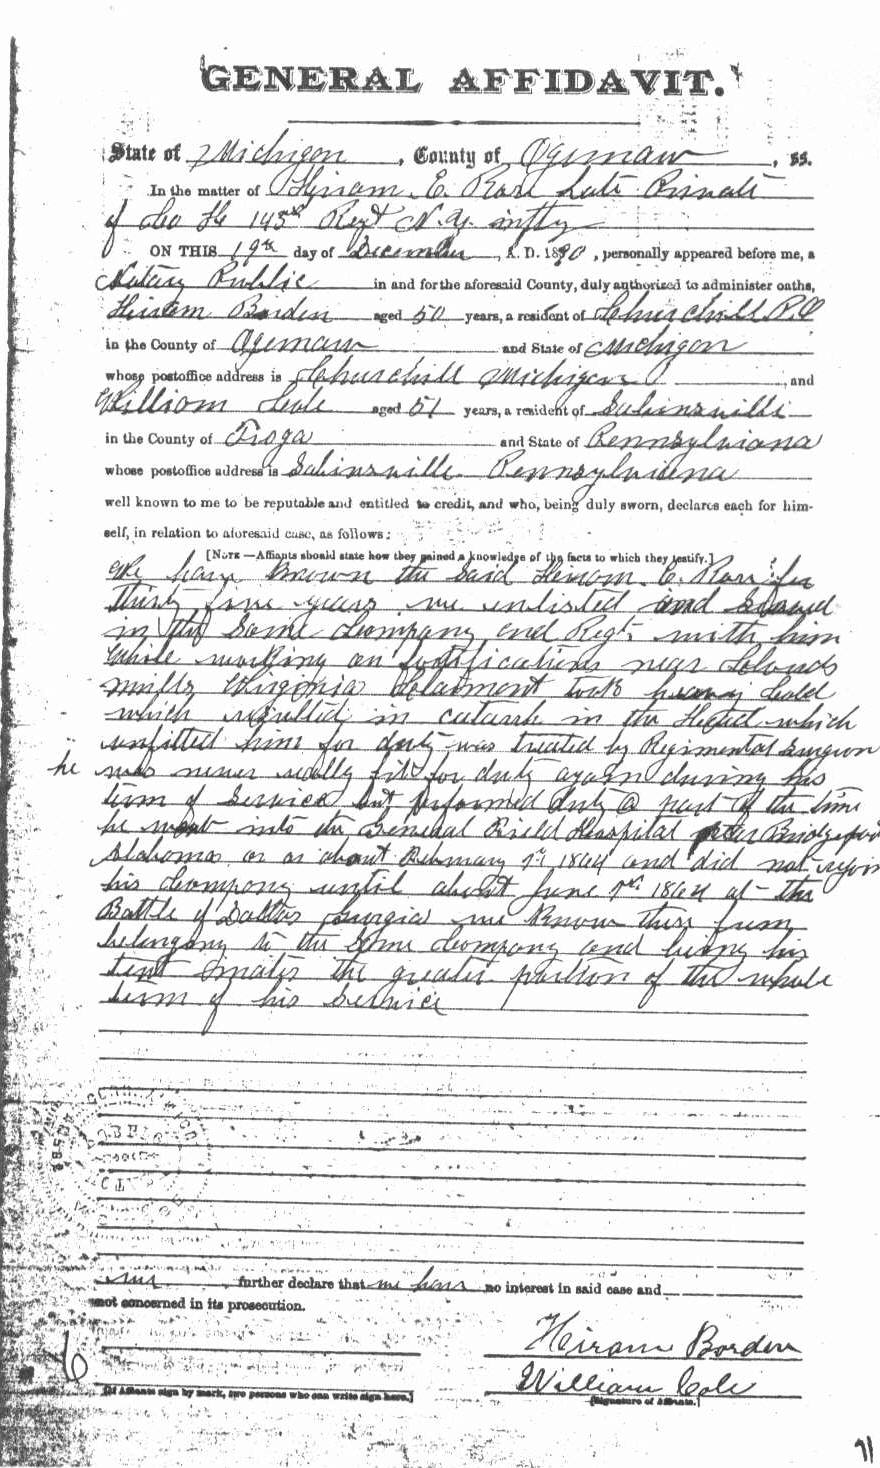 GENERAL AFFIDAVIT.
State of Michigan, County of Ogemaw, ss.
In the matter of Hiram E. Rose Late Private
of Co 145th Regt N.Y. infty
ON THIS 19th day of December, A. D. 1890, personally appeared before me, a
Notary Public in and for the aforesaid County, duly authorized to administer oaths,
Hiram Borden aged 50 years, a resident of Churchill P.O
in the County of Ogemaw and State of Michigan
whose postoffice address is Churchill Michigan, and
William Cole aged 51 years, a resident of Sabinsville
in the County of Tioga and State of Pennsylvania
whose postoffice address is Sabinsville Pennsylvania
well known to me to be reputable and entitled to credit, and who, being duly sworn, declares each for him-
self, in relation to aforesaid case, as follows:
[NOTE—Affiants should state how they gained a knowledge of the facts to which they testify.]
We have Known the Said Hiram E. Rose for
thirty five years we enlisted and served
in the Same Company and Regt. with him
While working on fortifications near
mills Virginia Claimant took heavy Cold
which resulted in catarrh in the Head which
unfitted him for duty was treated by Regimental Surgeon
he was never really fit for duty again during his
term of Service but performed duty a part of the time
he went into the General Field Hospital Bridgeport
Alabama on or about February 1st 1864 and did not rejoin
his Company until about June 1st 1864 at the
Battle of Dallas Georgia we Know this from
belonging to the Same Company and being his
tent mates the greater portion of the whole
term of his Service
we further declare that we have no interest in said case and
not concerned in its prosecution.
Hiram Borden
William Cole
[If Affiants sign by mark, two persons who can write sign here.]
[Signature of Affiants.]
6
71